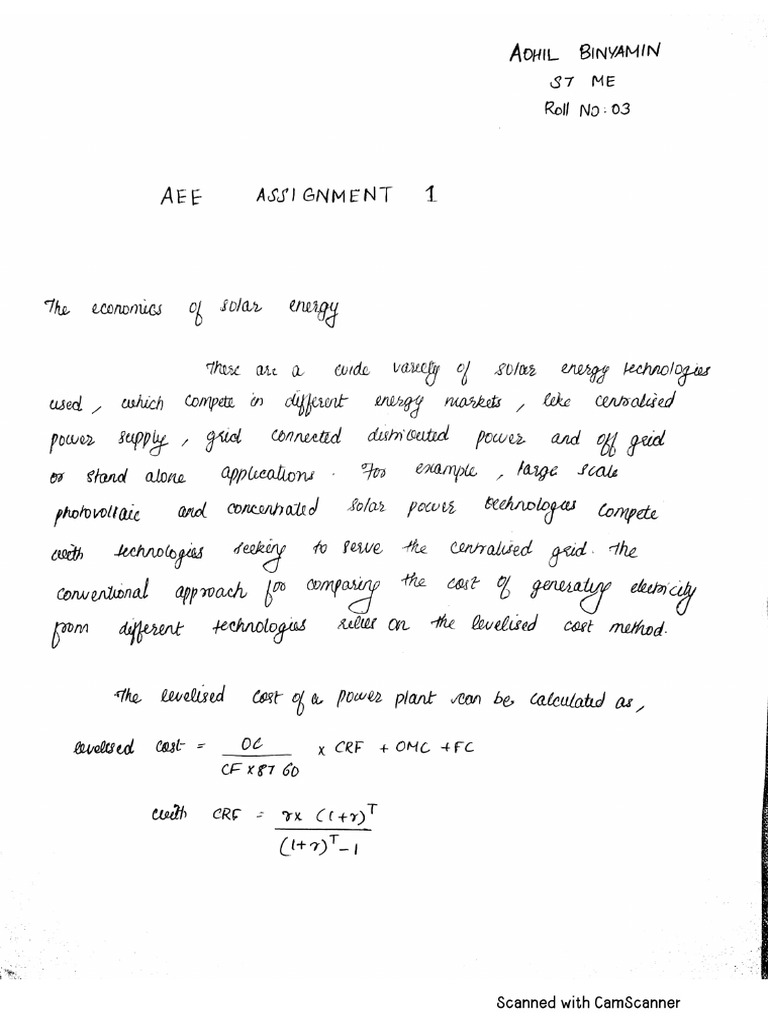 ADHIL BINYAMIN
S7 ME
Roll No: 03
AEE ASSIGNMENT 1
The economics of solar energy
There are a wide variety of solar energy technologies
used, which compete in different energy markets, like centralised
power supply, grid connected distributed power and off grid
or stand alone applications. For example, large scale
photovoltaic and concentrated solar power technologies compete
with technologies seeking to serve the centralised grid. The
conventional approach for comparing the cost of generating electricity
from different technologies relies on the levelised cost method.
The levelised cost of a power plant can be calculated as,
levelised cost = OC / CF x 8760 x CRF + OMC + FC
with CRF = r x (1+r)^T / (1+r)^T - 1
Scanned with CamScanner